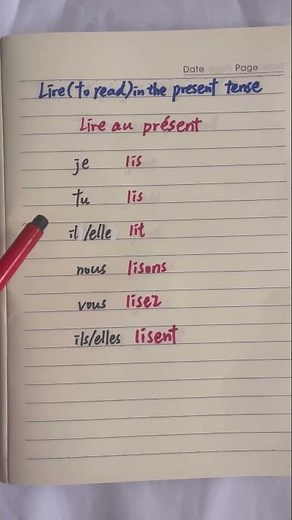 Date Page
Lire (to read) in the present tense
Lire au présent
je lis
tu lis
il/elle lit
nous lisons
vous lisez
ils/elles lisent